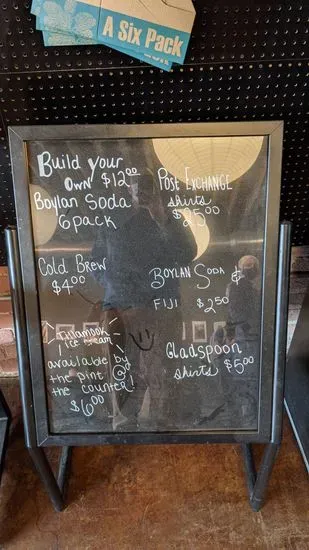 A Six Pack
Build your
own $12.00
Boylan Soda
6 pack
Post Exchange
shirts
$25.00
Cold Brew
$4.00
Boylan Soda &
Fiji $2.50
Tillamook
ice cream
available by
the pint @
the counter!
$6.00
Gladspoon
shirts $5.00